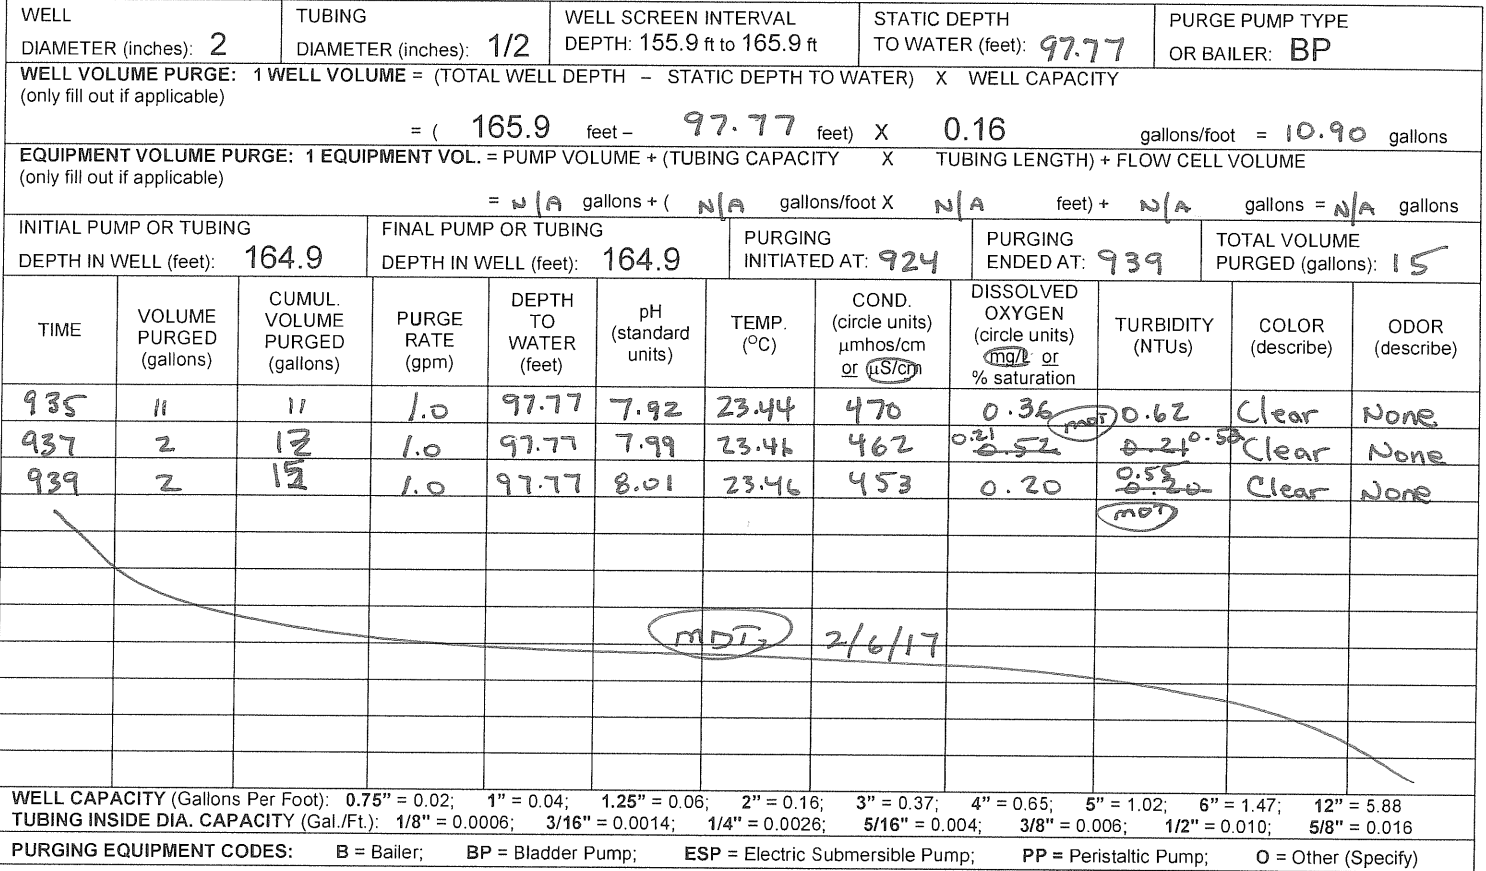 WELL DIAMETER (inches): 2 TUBING DIAMETER (inches): 1/2 WELL SCREEN INTERVAL DEPTH: 155.9 ft to 165.9 ft STATIC DEPTH TO WATER (feet): 97.77 PURGE PUMP TYPE OR BAILER: BP
WELL VOLUME PURGE: 1 WELL VOLUME = (TOTAL WELL DEPTH – STATIC DEPTH TO WATER) X WELL CAPACITY
(only fill out if applicable)
= ( 165.9 feet – 97.77 feet) X 0.16 gallons/foot = 10.90 gallons
EQUIPMENT VOLUME PURGE: 1 EQUIPMENT VOL. = PUMP VOLUME + (TUBING CAPACITY X TUBING LENGTH) + FLOW CELL VOLUME
(only fill out if applicable)
= N/A gallons + ( N/A gallons/foot X N/A feet) + N/A gallons = N/A gallons
INITIAL PUMP OR TUBING DEPTH IN WELL (feet): 164.9 FINAL PUMP OR TUBING DEPTH IN WELL (feet): 164.9 PURGING INITIATED AT: 924 PURGING ENDED AT: 939 TOTAL VOLUME PURGED (gallons): 15
TIME VOLUME PURGED (gallons) CUMUL. VOLUME PURGED (gallons) PURGE RATE (gpm) DEPTH TO WATER (feet) pH (standard units) TEMP. (°C) COND. (circle units) µmhos/cm or µS/cm DISSOLVED OXYGEN (circle units) mg/l or % saturation TURBIDITY (NTUs) COLOR (describe) ODOR (describe)
935 11 11 1.0 97.77 7.92 23.44 470 0.36 0.62 Clear None
MDT
937 2 1.0 97.77 7.99 23.46 462 0.21 0.52 0.21 0.52 Clear None
939 2 15 1.0 97.77 8.01 23.46 453 0.20 0.55 0.20 Clear None
MDT
MDT 2/6/17
WELL CAPACITY (Gallons Per Foot): 0.75" = 0.02; 1" = 0.04; 1.25" = 0.06; 2" = 0.16; 3" = 0.37; 4" = 0.65; 5" = 1.02; 6" = 1.47; 12" = 5.88
TUBING INSIDE DIA. CAPACITY (Gal./Ft.): 1/8" = 0.0006; 3/16" = 0.0014; 1/4" = 0.0026; 5/16" = 0.004; 3/8" = 0.006; 1/2" = 0.010; 5/8" = 0.016
PURGING EQUIPMENT CODES: B = Bailer; BP = Bladder Pump; ESP = Electric Submersible Pump; PP = Peristaltic Pump; O = Other (Specify)